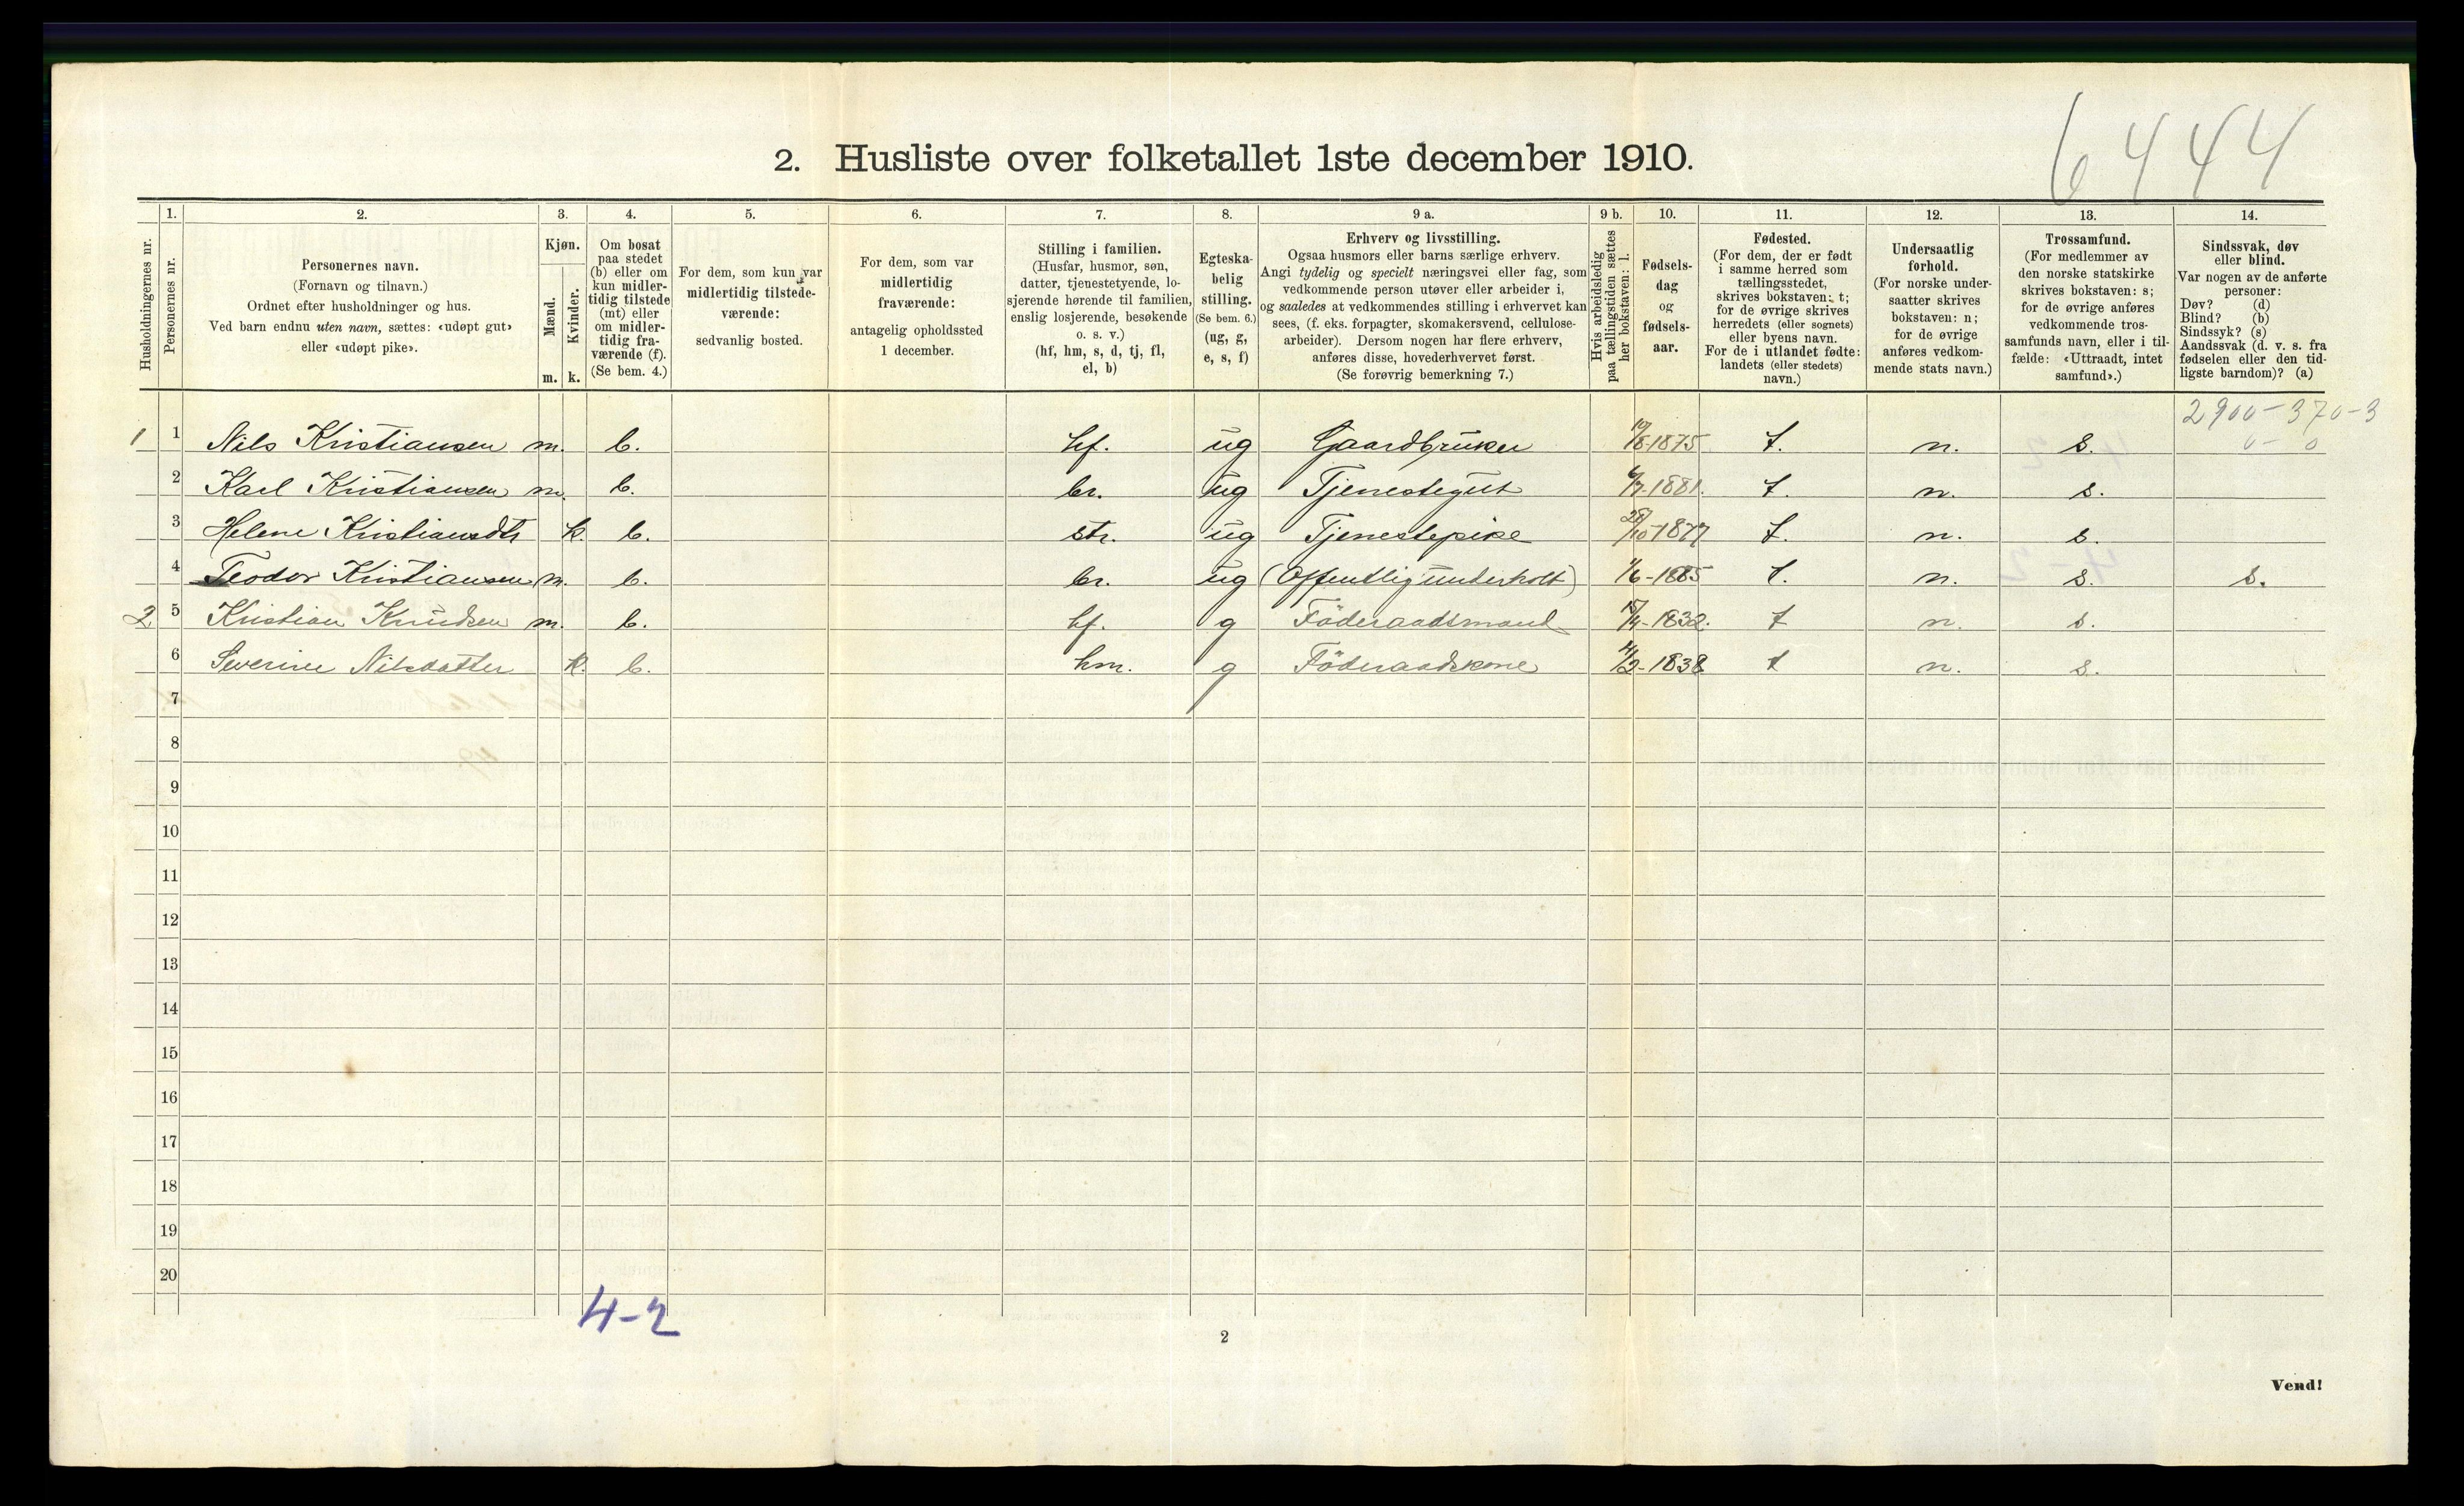 6444
2. Husliste over folketallet 1ste december 1910.
Husholdningernes nr.
1.
Personernes nr.
2.
Personernes navn.
(Fornavn og tilnavn.)
Ordnet efter husholdninger og hus.
Ved barn endnu uten navn, sættes: «udøpt gut»
eller «udøpt pike».
3.
Kjøn.
Mænd.
Kvinder.
m. k.
4.
Om bosat
paa stedet
(b) eller om
kun midler-
tidig tilstede
(mt) eller
om midler-
tidig fra-
værende (f).
(Se bem. 4.)
5.
For dem, som kun var
midlertidig tilstede-
værende:
sedvanlig bosted.
6.
For dem, som var
midlertidig
fraværende:
antagelig opholdssted
1 december.
7.
Stilling i familien.
(Husfar, husmor, søn,
datter, tjenestetyende, lo-
sjerende hørende til familien,
enslig losjerende, besøkende
o. s. v.)
(hf, hm, s, d, tj, fl,
el, b)
8.
Egteska-
belig
stilling.
(Se bem. 6.)
(ug, g,
e, s, f)
9 a.
Erhverv og livsstilling.
Ogsaa husmors eller barns særlige erhverv.
Angi tydelig og specielt næringsvei eller fag, som
vedkommende person utøver eller arbeider i,
og saaledes at vedkommendes stilling i erhvervet kan
sees, (f. eks. forpagter, skomakersvend, cellulose-
arbeider). Dersom nogen har flere erhverv,
anføres disse, hovederhvervet først.
(Se forøvrig bemerkning 7.)
9 b.
Hvis arbeidsledig
paa tællingstiden sættes
her bokstaven: l.
10.
Fødsels-
dag
og
fødsels-
aar.
11.
Fødested.
(For dem, der er født
i samme herred som
tællingsstedet,
skrives bokstaven: t;
for de øvrige skrives
herredets (eller sognets)
eller byens navn.
For de i utlandet fødte:
landets (eller stedets)
navn.)
12.
Undersaatlig
forhold.
(For norske under-
saatter skrives
bokstaven: n;
for de øvrige
anføres vedkom-
mende stats navn.)
13.
Trossamfund.
(For medlemmer av
den norske statskirke
skrives bokstaven: s;
for de øvrige anføres
vedkommende tros-
samfunds navn, eller i til-
fælde: «Uttraadt, intet
samfund».)
14.
Sindssvak, døv
eller blind.
Var nogen av de anførte
personer:
Døv? (d)
Blind? (b)
Sindssyk? (s)
Aandssvak (d. v. s. fra
fødselen eller den tid-
ligste barndom)? (a)
2900-370-3
0- 0
1 1 Nils Kristiansen m. b. hf. ug Gaardbruker 19/8-1875 t. n. s.
2 Karl Kristiansen m. b. br. ug Tjenestegut 6/7-1881. t. n. s.
3 Helene Kristiansdtr k. b. str. ug Tjenestepike 28/10-1877 t. n. s.
4 Teodor Kristiansen m. b. br. ug (Offentlig underholt) 1/6-1885 t. n. s. s.
2 5 Kristian Knudsen m. b. hf. g Föderaadsmand 15/4-1832. t n. s.
6 Severine Nilsdatter k. b. hm. g Föderaadskone 4/2-1838 t n. s.
7
8
9
10
11
12
13
14
15
16
17
18
19
20
4-2
2
Vend!